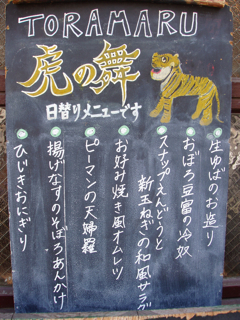 TORAMARU
虎の舞
日替りメニューです
生ゆばのお造り
おぼろ豆富の冷奴
スナップえんどうと
新玉ねぎの和風サラダ
お好み焼き風オムレツ
ピーマンの天婦羅
揚げなすのそぼろあんかけ
ひじきおにぎり